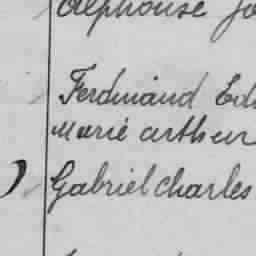 Alphonse Jo
Ferdinand Ed
Marie arthur
Gabriel charles